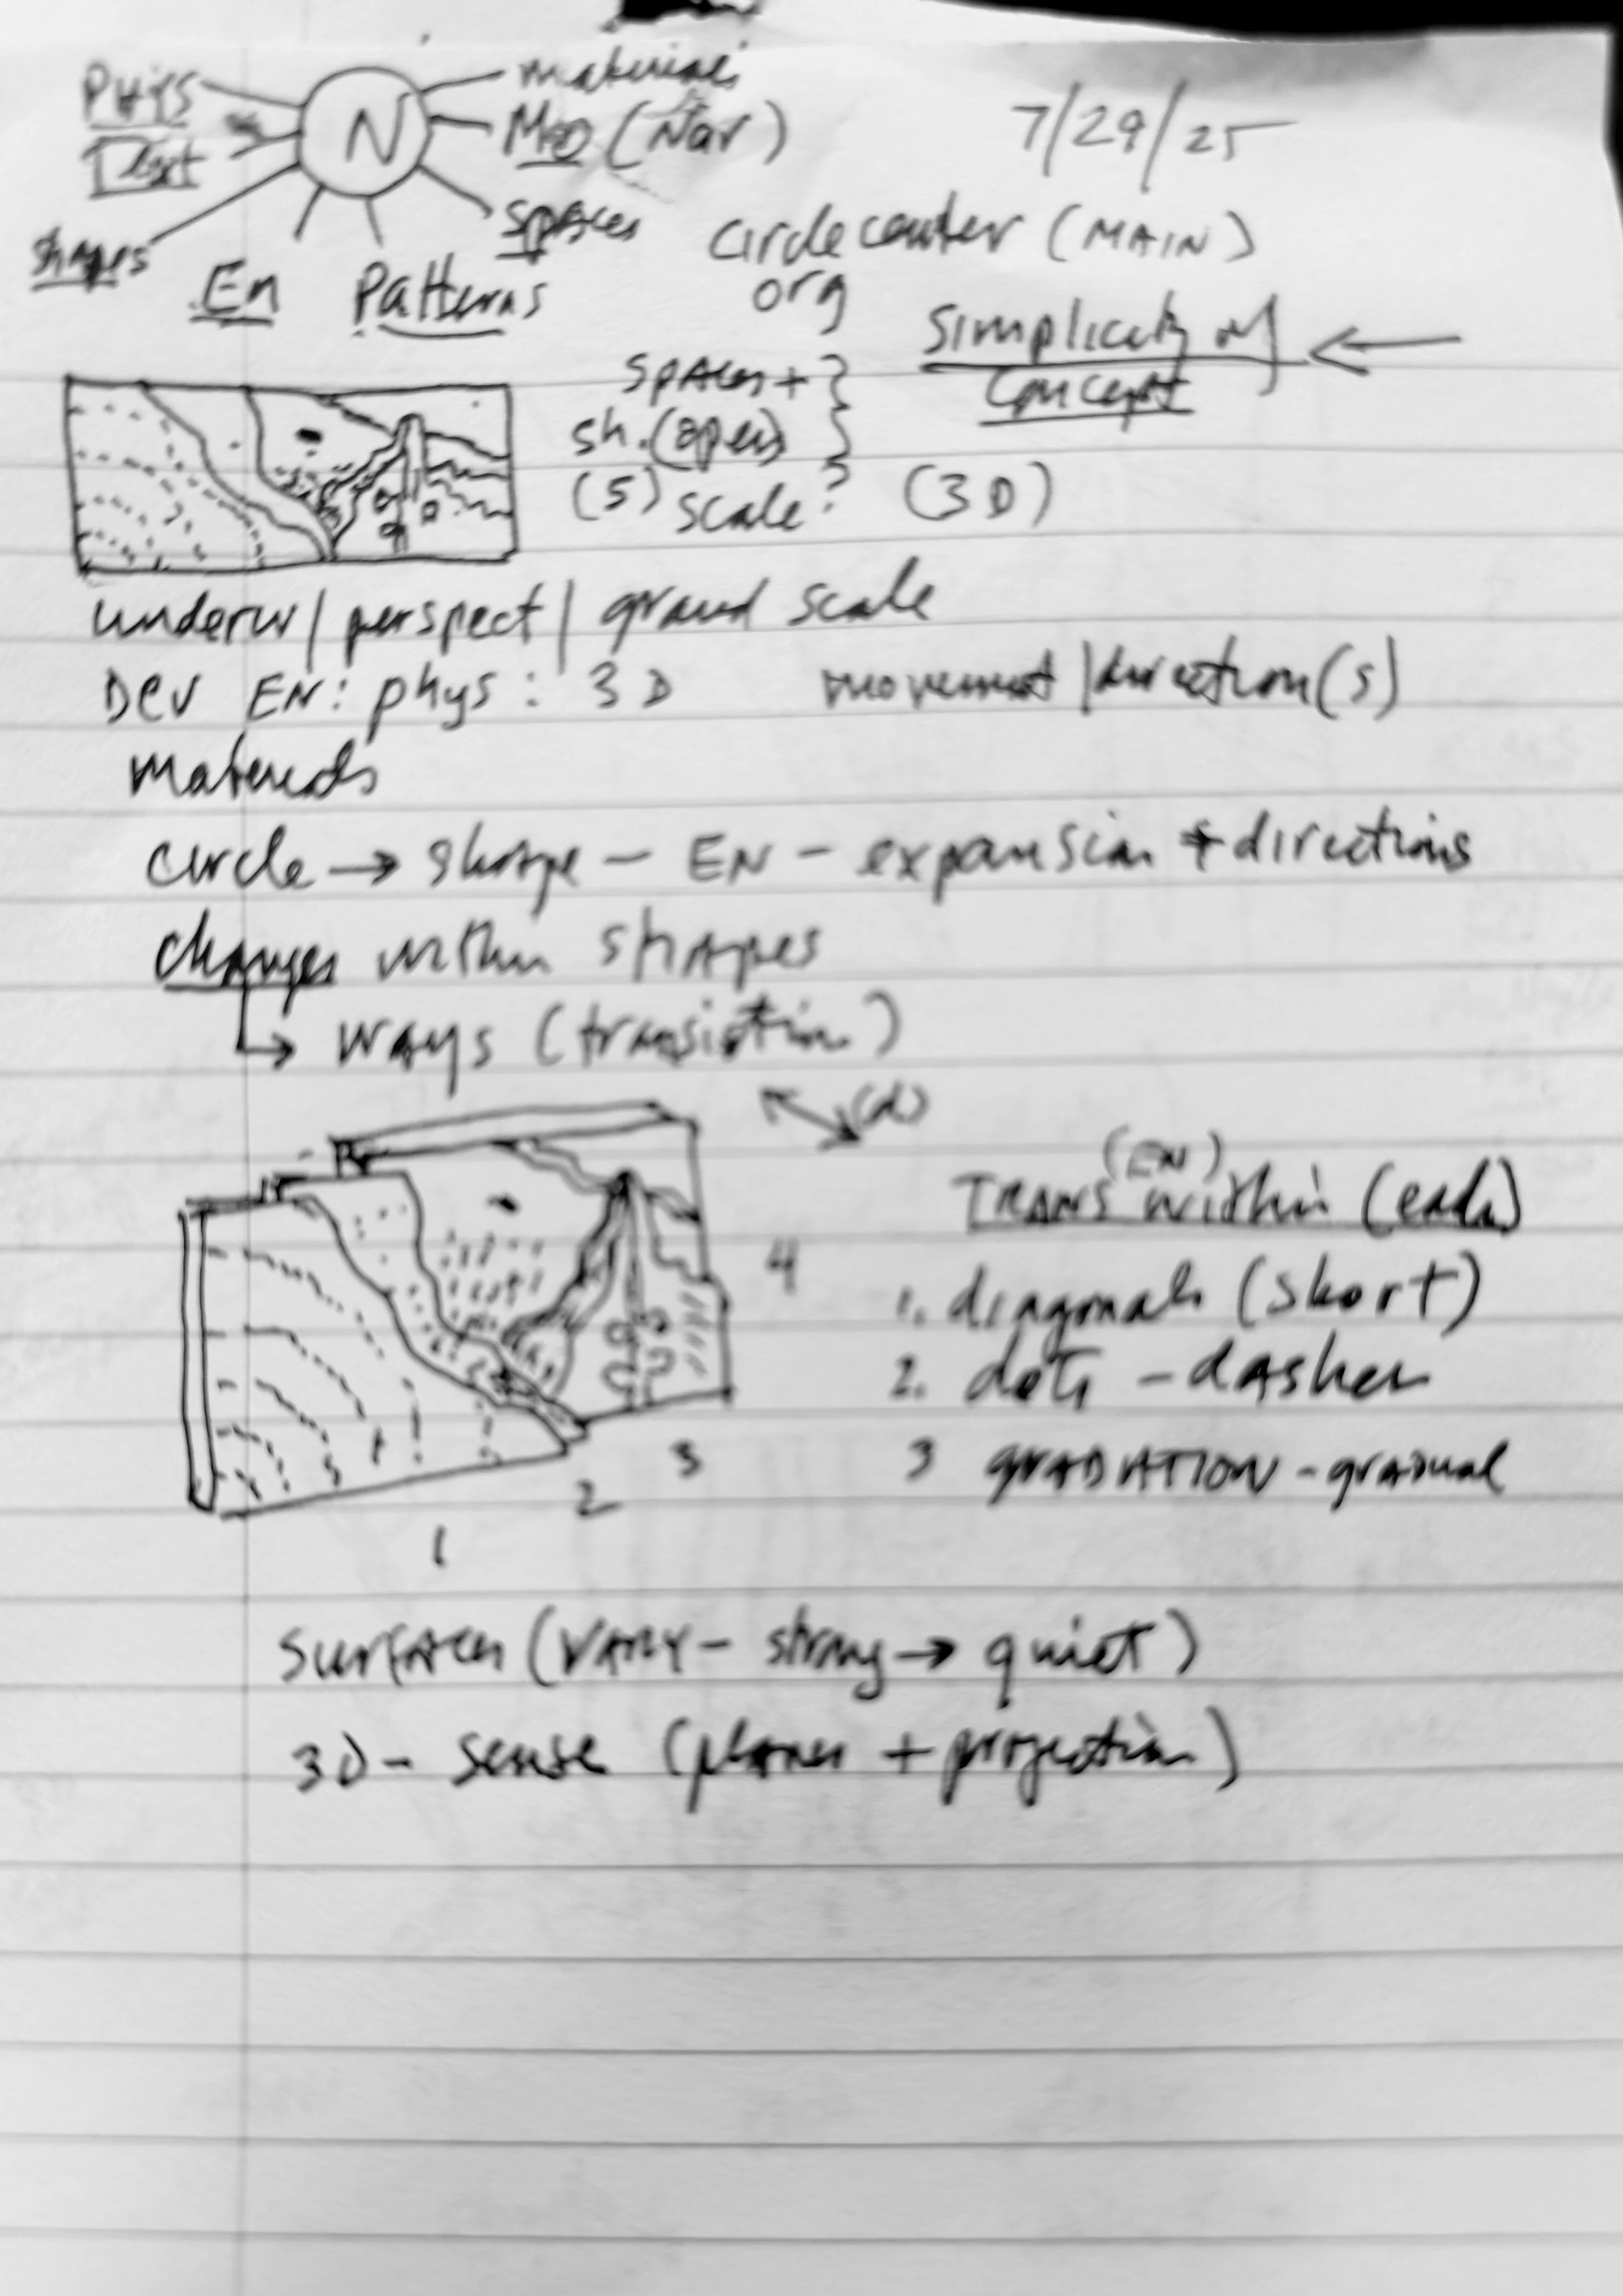 materials
Phys
N
(Nar)
7/29/25
shapes
spaces
circle center (MAIN)
En Patterns
org
simplicity of
concept
spaces +
sh. (open)
(5) scale? (3D)
underw/perspect/grand scale
Dev EN: phys: 3D movement/direction(s)
materials
circle → shape - EN - expansion + directions
changes within shapes
→ ways (transistion)
(d)
(EN)
TRANS within (each)
4
1. diagonals (short)
2. dots - dashes
3 GRADATION - gradual
3
2
1
surfaces (VARY - strong → quiet)
3D - sense (planes + projection)